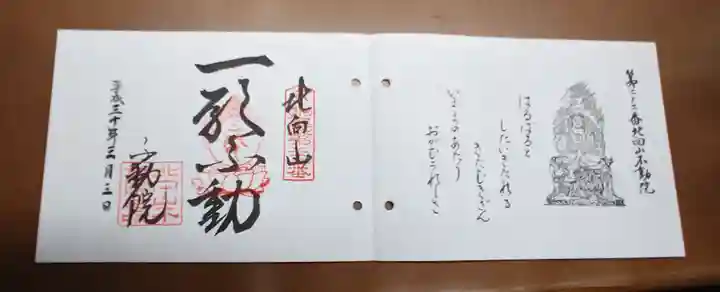 第二十二番北向山不動院
はるばると
したいきたれる
きたむきざん
いまをまのあたり
おがむうれしさ
北向山
一願不動
不動院
平成三十年三月三日